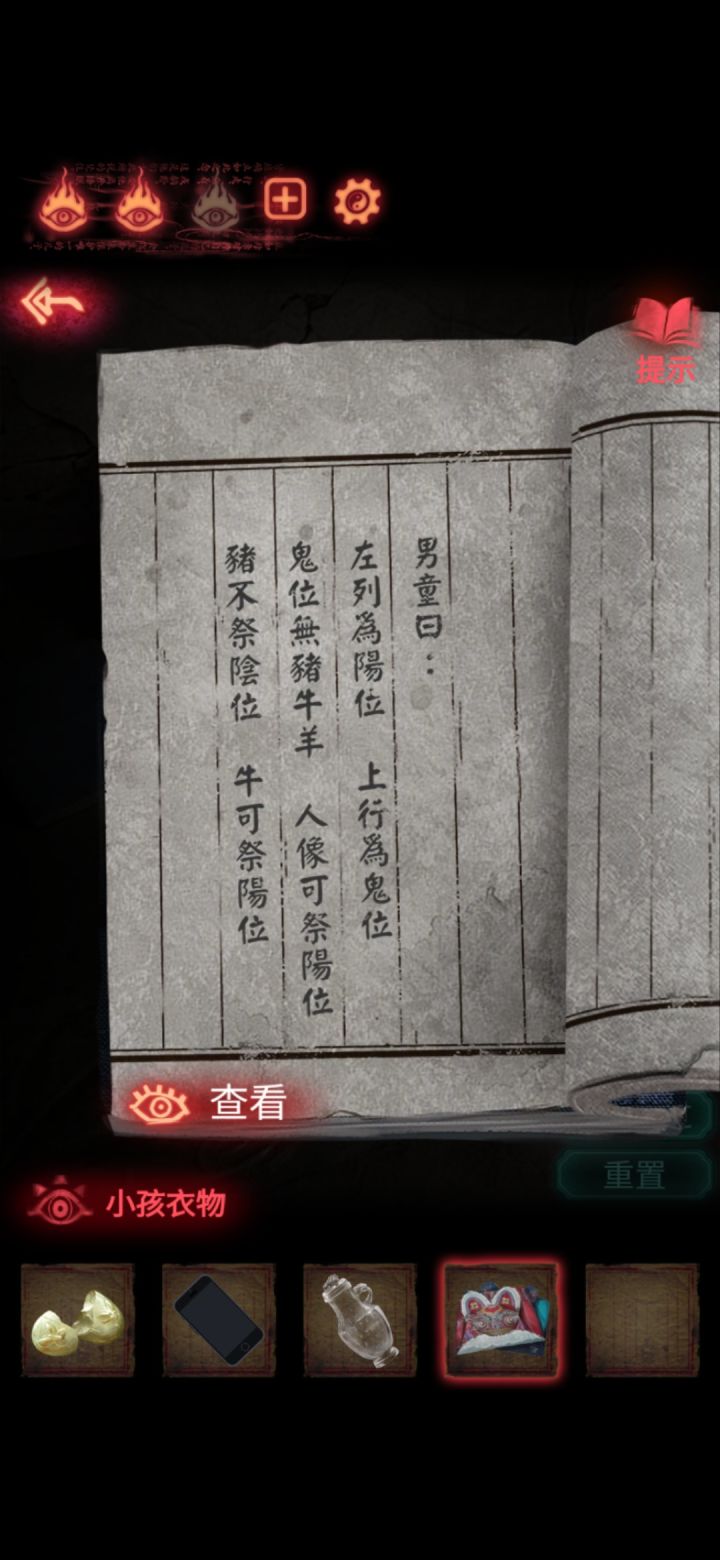 提示
男童曰：
左列爲陽位 上行爲鬼位
鬼位無豬牛羊 人像可祭陽位
豬不祭陰位 牛可祭陽位
查看
重置
小孩衣物